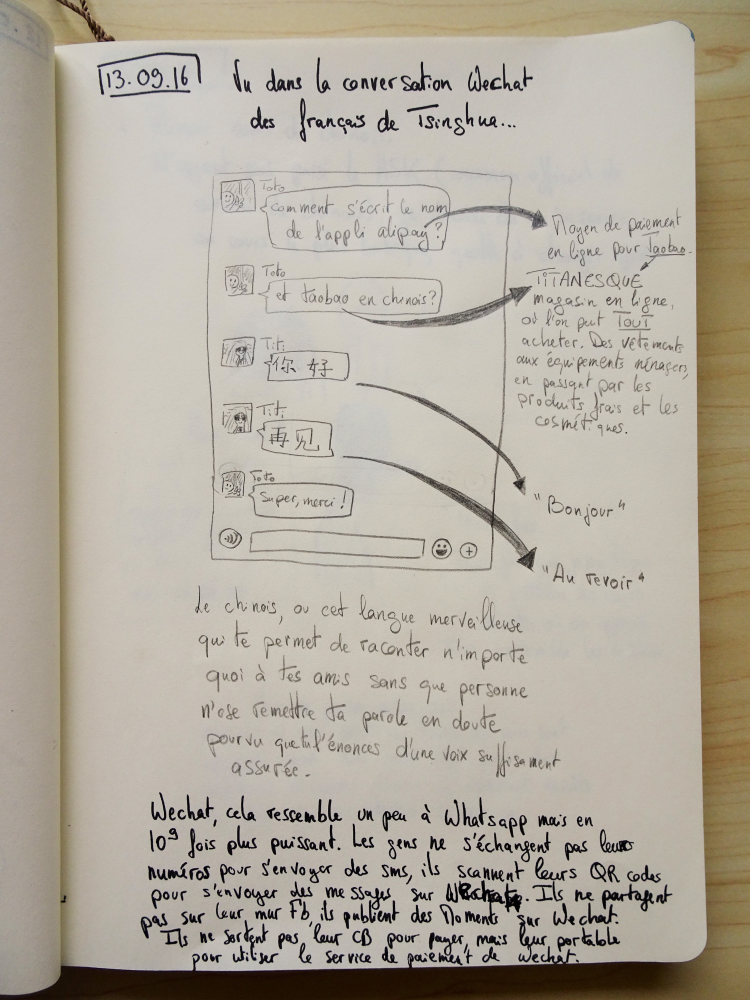 13.09.16
Vu dans la conversation Wechat
des français de Tsinghua...
Toto
comment s'écrit le nom
de l'appli alipay?
Moyen de paiement
en ligne pour Taobao.
Toto
et taobao en chinois?
TITANESQUE
magasin en ligne,
où l'on peut TOUT
acheter. Des vêtements
aux équipements ménagers,
en passant par les
produits frais et les
cosmétiques.
Titi
你好
Titi
再见
Toto
Super, merci!
"Bonjour"
"Au revoir"
Le chinois, ou cet langue merveilleuse
qui te permet de raconter n'importe
quoi à tes amis sans que personne
n'ose remettre ta parole en doute
pourvu que tu l'énonces d'une voix suffisament
assurée.
Wechat, cela ressemble un peu à Whatsapp mais en
10⁹ fois plus puissant. Les gens ne s'échangent pas leur
numéros pour s'envoyer des sms, ils scannent leurs QR codes
pour s'envoyer des messages sur Wechat. Ils ne partagent
pas sur leur mur Fb, ils publient des Moments sur Wechat.
Ils ne sortent pas leur CB pour payer, mais leur portable
pour utiliser le service de paiement de wechat.